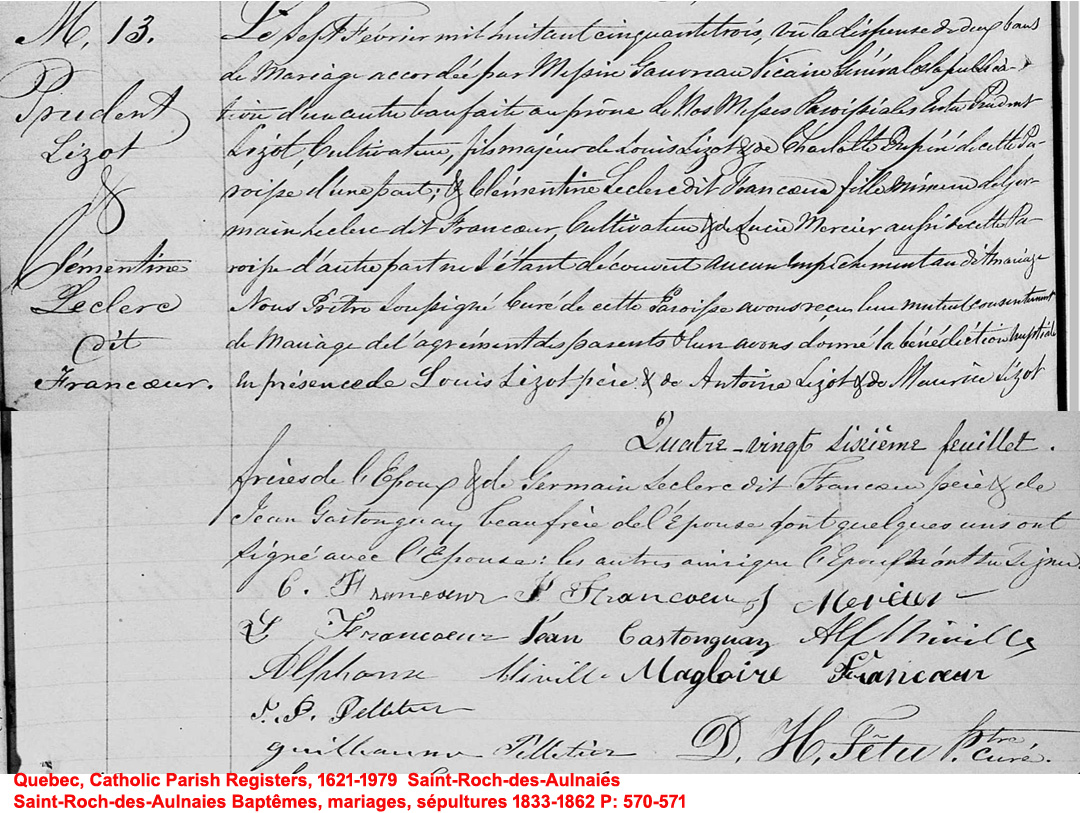 M. 13.
Prudent
Lizot
&
Clémentine
Leclerc
dit
Francœur.
Le Sept Février mil huit cent cinquante trois, vu la dispense de deux bans
de Mariage accordée par Messire Gauvreau Vicaire Général & la publica-
tion d'un autre ban faite au prône de Nos Messes Paroissiales Entre Prudent
Lizot, Cultivateur, fils majeur de Louis Lizot & de Charlotte Dupéré de cette Pa-
roisse d'une part; & Clémentine Leclerc dit Francœur fille mineure de Ger-
main Leclerc dit Francœur, Cultivateur & de Lucie Mercier aussi de cette Pa-
roisse d'autre part ne s'étant découvert aucun empêchement au dit mariage
Nous Prêtre Soussigné Curé de cette Paroisse avons reçu leur mutuel consentement
de Mariage de l'agrément des parents & leur avons donné la bénédiction nuptiale
en présence de Louis Lizot père & de Antoine Lizot & de Maurice Lizot
Quatre-vingt sixième feuillet.
frères de l'Epoux & de Germain Leclerc dit Francœur père & de
Jean Gastonguay beaufrère de l'Epouse dont quelques uns ont
signé avec l'Epouse: les autres ainsi que l'Epoux n'ont su signer
C. Francœur Francœur J Mercier
L Francœur Jean Castonguay Alf Miville
Alphonse Miville Magloire Francœur
J. P. Pelletier
Guillaume Pelletier D. H. Têtu Ptre Curé.
Quebec, Catholic Parish Registers, 1621-1979 Saint-Roch-des-Aulnaiés
Saint-Roch-des-Aulnaies Baptêmes, mariages, sépultures 1833-1862 P: 570-571